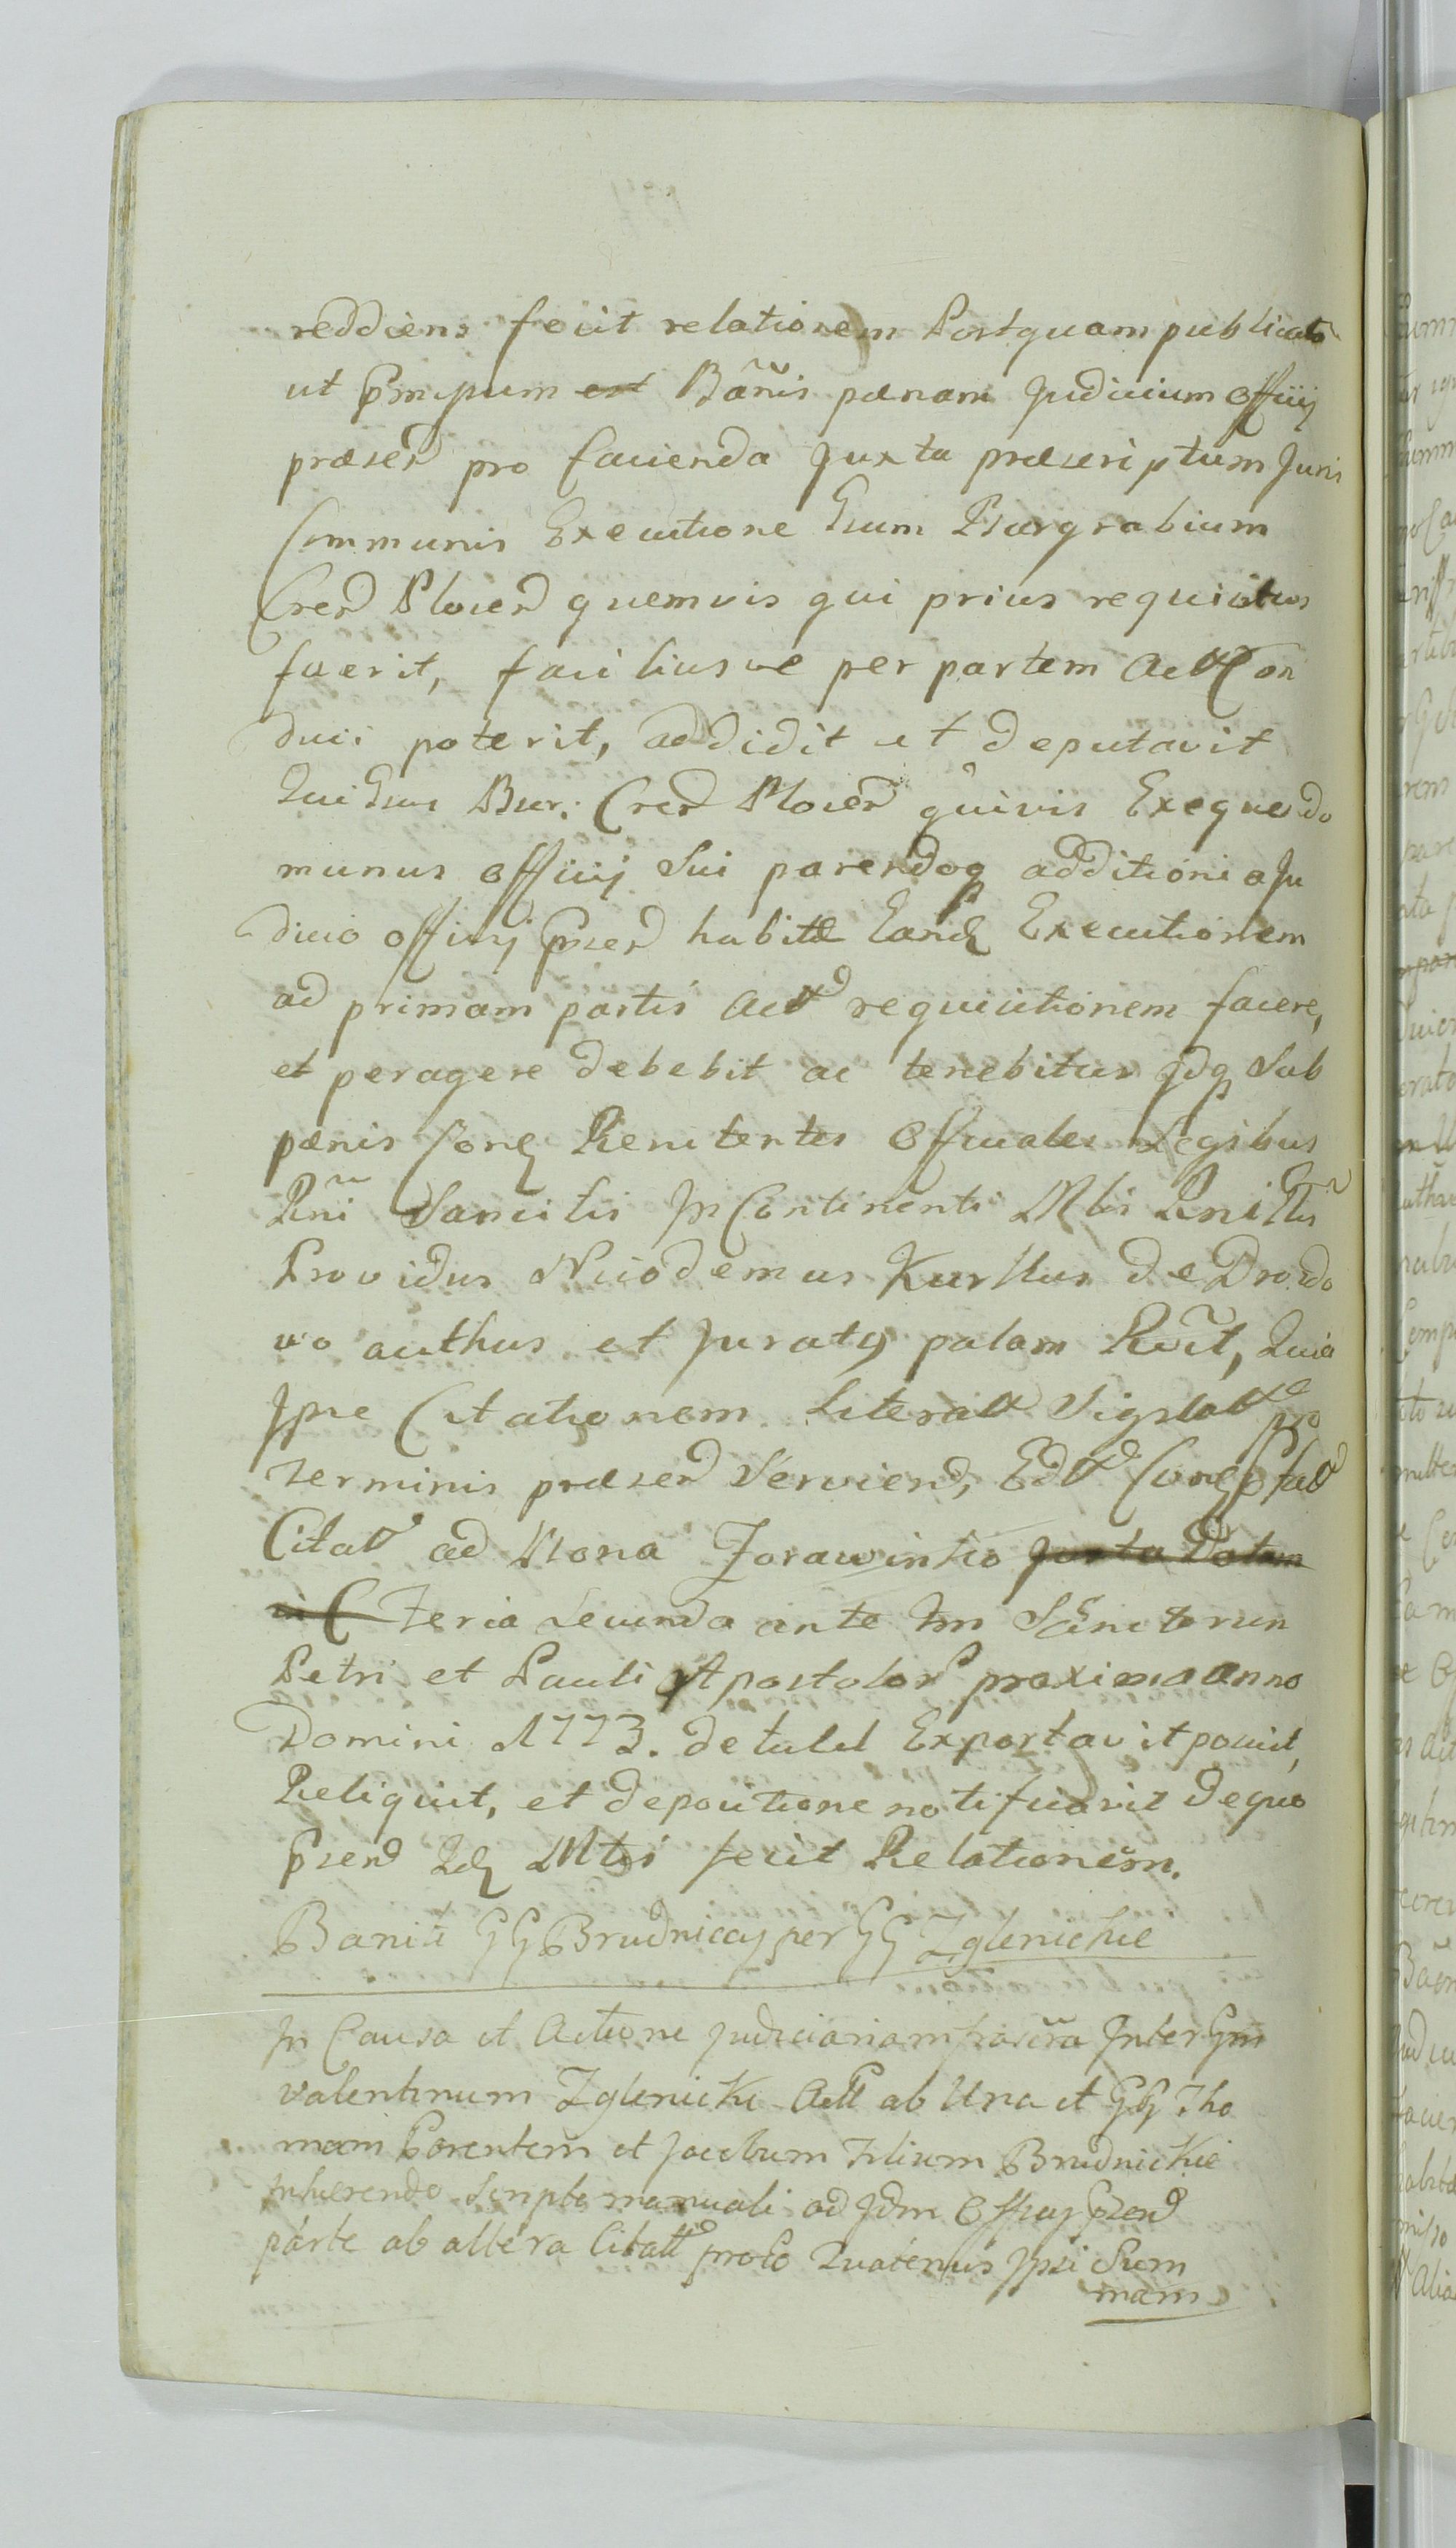 reddiens fecit relationem Postquam publicato
ut Pmpum est Bañis pœnam Judicium Officij
præsen pro facienda Juxta præscriptum Juris
Communis Executione Gsum Burgrabium
Cren Plocen quemvis qui prius requisitus
fuerit, faciliusve per partem Act Con
duci poterit, addidit et deputavit
Qui Gsus Bur: Cren Plocen quivis Exequendo
munus officij Sui parendoq additioni a Ju
dicio officij Pnsen habitæ Eand Executionem
ad primam partis Act requisitionem facere,
et peragere debebit ac tenebitur Idq Sub
pœnis Conq Renitentes Officiales Legibus
Rñi Sancitis In Continenti Mtis
Providus Nicodemus Kurkus de Drozdo
wo authus et Juratq palam Rvit, Quia
Ipse Citationem Literat Sigillat pro
terminis præsen Serviend, Edt Conq
Citat ad Bona Zorawinko Juxta Votum
in C Feria Secunda ante Fm Sanctorum
Petri et Pauli Apostolor proxima anno
Domini 1773. detulit Exportavit posuit,
Reliquit, et de positione notificavit de quo
Pnsen Id Mtri fecit Relationem.
Banit GG Brudnicą per GG Zglenickie
In Causa et Actione Judiciaria infrascra Inter Gm
valentinum Zglenicki Act ab Una et GG Tho
mam Parentem et Jacobum Filium Brudnickie
Inhærendo Scripto manuali ad Idm Officij Pnsen
parte ab altera Citatt pro eo Quatenus Ipsi Sum
mam